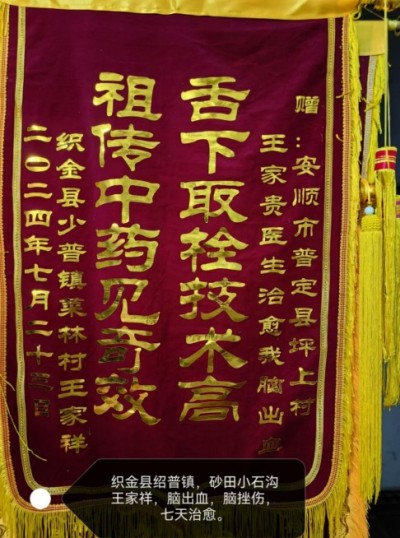 赠：安顺市普定县坪上村
王家贵医生治愈我脑出血
舌下取栓技术高
祖传中药见奇效
织金县少普镇菜林村王家祥
二〇二四年七月二十三日
织金县绍普镇，砂田小石沟
王家祥，脑出血，脑挫伤，
七天治愈。